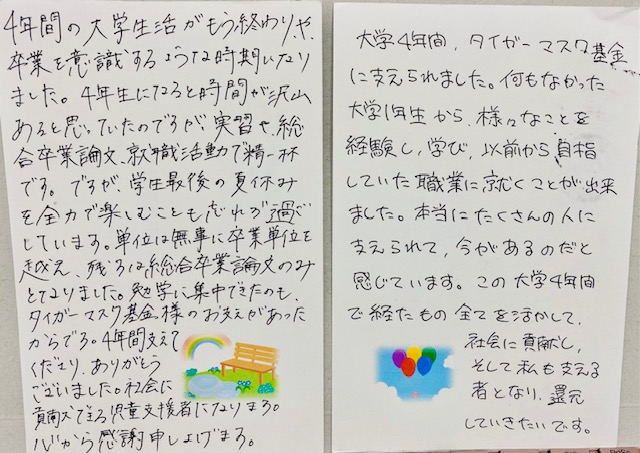 4年間の大学生活がもう終わりや、
卒業を意識するような時期になり
ました。4年生になると時間が沢山
あると思っていたのですが、実習や、総
合卒業論文、就職活動で精一杯
です。ですが、学生最後の夏休み
を全力で楽しむことも忘れず過ご
しています。単位は無事に卒業単位を
越え、残るは総合卒業論文のみ
となりました。勉学に集中できたのも、
タイガーマスク基金様のお支えがあった
からです。4年間支えて
くださり、ありがとう
ございました。社会に
貢献できる児童支援者になります。
心から感謝申し上げます。
大学4年間、タイガーマスク基金
に支えられました。何もなかった
大学1年生から、様々なことを
経験し、学び、以前から目指
していた職業に就くことが出来
ました。本当にたくさんの人に
支えられて、今があるのだと
感じています。この大学4年間
で経たもの全てを活かして、
社会に貢献し、
そして私も支える
者となり、還元
していきたいです。